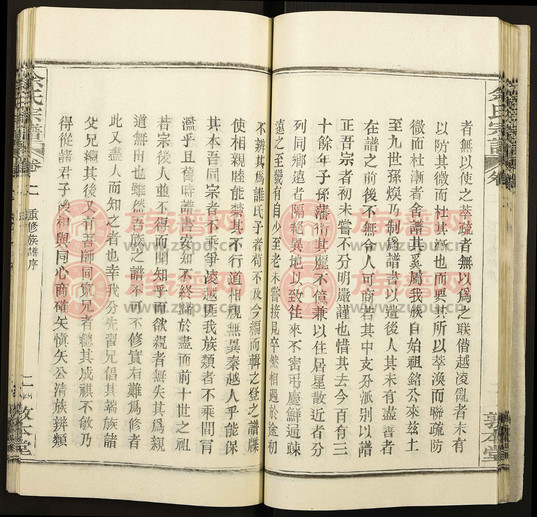 余氏宗譜
者無以使之萃疏者無以為之聯僭越凌亂者未有
以防其微而杜其漸也而要其所以萃渙而聯疏防
微而杜漸者舍譜其奚屬我族自始祖銘公來玆土
至九世孫煥乃制為譜書以遺後人其未有盡善者
在譜之前後不無令人可商若其中支分派別以譜
正吾宗者初未嘗不分明嚴謹也惜其去今百有三
十餘年子孫蕃衍其麗不億兼以住居星散近者分
列同鄉遠者隔絕異地以致往來不密弔慶鮮通竦
遠之至幾有自少至老未嘗接見卒然相遇於途初
敦本堂
不辨其為誰氏子者苟不及今編而輯之登之譜牒
使相親睦能禁其不行道相視無異秦越人乎能保
其本吾同宗者不乘爭凌越匪我族類者不乘間冒
濫乎且舊時譜書安如不終歸於盡而前十世之祖
若宗後人並不得而聞知乎而欲親者無失其為親
道無由也雖然吾族之譜不可不修實有難為修者
此又盡人而知之者也幸我分先哲兄倡其為族譜
父兄繼其後又有吾師同寅兄者繼其成祺不敏乃
得從諸君子後相與同心商確矢愼矢公清族辨類
余氏宗譜
卷上
重修族譜序
二
敦本堂
族譜网
www.zupu.cn